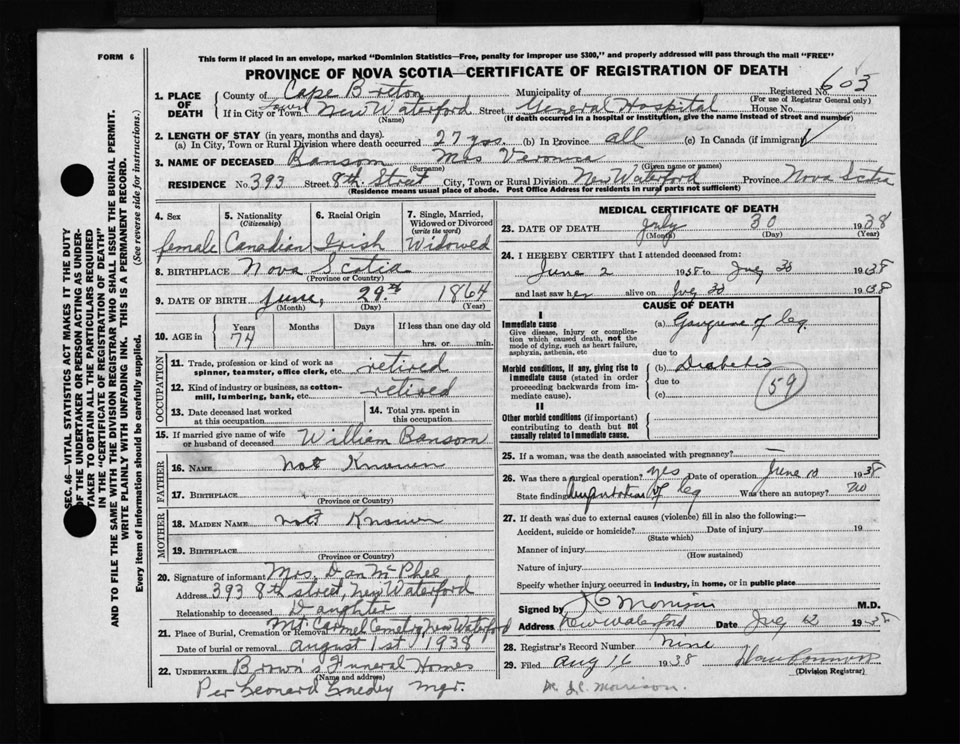 FORM 6
This form if placed in an envelope, marked "Dominion Statistics—Free, penalty for improper use $300," and properly addressed will pass through the mail "FREE"
PROVINCE OF NOVA SCOTIA—CERTIFICATE OF REGISTRATION OF DEATH
603
1. PLACE OF DEATH
County of Cape Breton Municipality of Registered No.
(For use of Registrar General only)
If in City or Town New Waterford Street General Hospital House No.
(Name) (If death occurred in a hospital or institution, give the name instead of street and number)
2. LENGTH OF STAY (in years, months and days).
(a) In City, Town or Rural Division where death occurred 27 yrs. (b) In Province all (c) In Canada (if immigrant)
3. NAME OF DECEASED Bansom Mrs Veronica
(Surname) (Given name or names)
RESIDENCE No. 393 Street 8th Street City, Town or Rural Division New Waterford Province Nova Scotia
(Residence means usual place of abode. Post Office Address for residents in rural parts not sufficient)
4. Sex female
5. Nationality (Citizenship) Canadian
6. Racial Origin Irish
7. Single, Married, Widowed or Divorced (write the word) Widowed
8. BIRTHPLACE Nova Scotia
(Province or Country)
9. DATE OF BIRTH June, 29th 1864
(Month) (Day) (Year)
10. AGE in Years Months Days If less than one day old
74 hrs. or min.
OCCUPATION
11. Trade, profession or kind of work as spinner, teamster, office clerk, etc. retired
12. Kind of industry or business, as cotton-mill, lumbering, bank, etc. retired
13. Date deceased last worked at this occupation
14. Total yrs. spent in this occupation
15. If married give name of wife or husband of deceased William Bansom
FATHER
16. NAME not Known
17. BIRTHPLACE
(Province or Country)
MOTHER
18. MAIDEN NAME not Known
19. BIRTHPLACE
(Province or Country)
20. Signature of informant Mrs. Dan McPhee
Address 393 8th street, New Waterford
Relationship to deceased Daughter
21. Place of Burial, Cremation or Removal Mt. Carmel Cemetery New Waterford
Date of burial or removal august 1st 1938
22. UNDERTAKER Brown's Funeral Homes
(Name and address)
Per Leonard mgr.
MEDICAL CERTIFICATE OF DEATH
23. DATE OF DEATH July 30 1938
(Month) (Day) (Year)
24. I HEREBY CERTIFY that I attended deceased from:
June 2 1938 to July 30 1938
and last saw her alive on July 30 1938
CAUSE OF DEATH
I
Immediate cause
Give disease, injury or complication which caused death, not the mode of dying, such as heart failure, asphyxia, asthenia, etc
(a) Gangrene of leg
due to
Morbid conditions, if any, giving rise to immediate cause (stated in order proceeding backwards from immediate cause).
(b) Diabetes
due to
(c)
59
II
Other morbid conditions (if important) contributing to death but not causally related to immediate cause.
25. If a woman, was the death associated with pregnancy?
26. Was there a surgical operation? yes Date of operation June 10 1938
State finding Amputation of leg Was there an autopsy? no
27. If death was due to external causes (violence) fill in also the following:—
Accident, suicide or homicide? Date of injury 19
(State which)
Manner of injury
(How sustained)
Nature of injury
Specify whether injury occurred in industry, in home, or in public place
Signed by Morrison M.D.
Address New Waterford Date 1938
28. Registrar's Record Number nine
29. Filed aug 16 1938
(Division Registrar)
Dr. J.C. Morrison.
SEC. 46—VITAL STATISTICS ACT MAKES IT THE DUTY
OF THE UNDERTAKER OR PERSON ACTING AS UNDER-
TAKER TO OBTAIN ALL THE PARTICULARS REQUIRED
IN THE "CERTIFICATE OF REGISTRATION OF DEATH"
AND TO FILE THE SAME WITH THE DIVISION REGISTRAR WHO SHALL ISSUE THE BURIAL PERMIT.
WRITE PLAINLY WITH UNFADING INK. THIS IS A PERMANENT RECORD.
Every item of information should be carefully supplied. (See reverse side for instructions.)